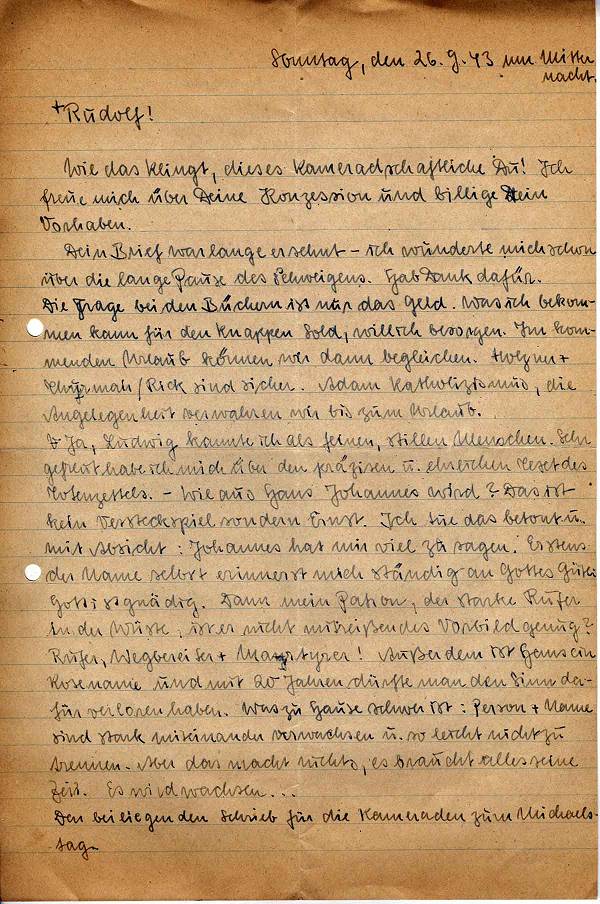 Sonntag, den 26. 9. 43 um Mitter
nacht.
+ Rudolf!
Wie das klingt, dieses kameradschaftliche Du! Ich
freue mich über Deine Konzession und billige Dein
Vorhaben.
Dein Brief war lange ersehnt – ich wunderte mich schon
über die lange Pause des Schweigens. Hab Dank dafür.
Die Frage bei den Büchern ist nur das Geld. Was ich bekom-
men kann für den knappen Sold, will ich besorgen. Im kom-
menden Urlaub können wir dann begleichen. Holzner +
/ Rick sind sicher. Adam Katholizismus, die
Angelegenheit verwahren wir bis zum Urlaub.
Ja, Ludwig kannte ich als feinen, stillen Menschen. Sehr
gefreut habe ich mich über den präzisen u. ehrlichen Text des
Totenzettels. – Wie aus Hans Johannes wird? Das ist
kein Versteckspiel sondern Ernst. Ich tue das betont u.
mit Absicht: Johannes hat mir viel zu sagen. Erstens
der Name selbst erinnerst mich ständig an Gottes Güte:
Gott ist gnädig. Dann mein Patron, der starke Rufer
in der Wüste, ist er nicht mitreißendes Vorbild genug?
Rufer, Wegbereiter + Martyrer! Außerdem ist Hans ein
Kosename und mit 20 Jahren dürfte man den Sinn da-
für verloren haben. Was zu Hause schwer ist: Person + Name
sind stark miteinander verwachsen u. so leicht nicht zu
trennen. Aber das macht nichts, es braucht alles seine
Zeit. Es wird wachsen...
Den beiliegenden Schrieb für die Kameraden zum Michaels-
tag.